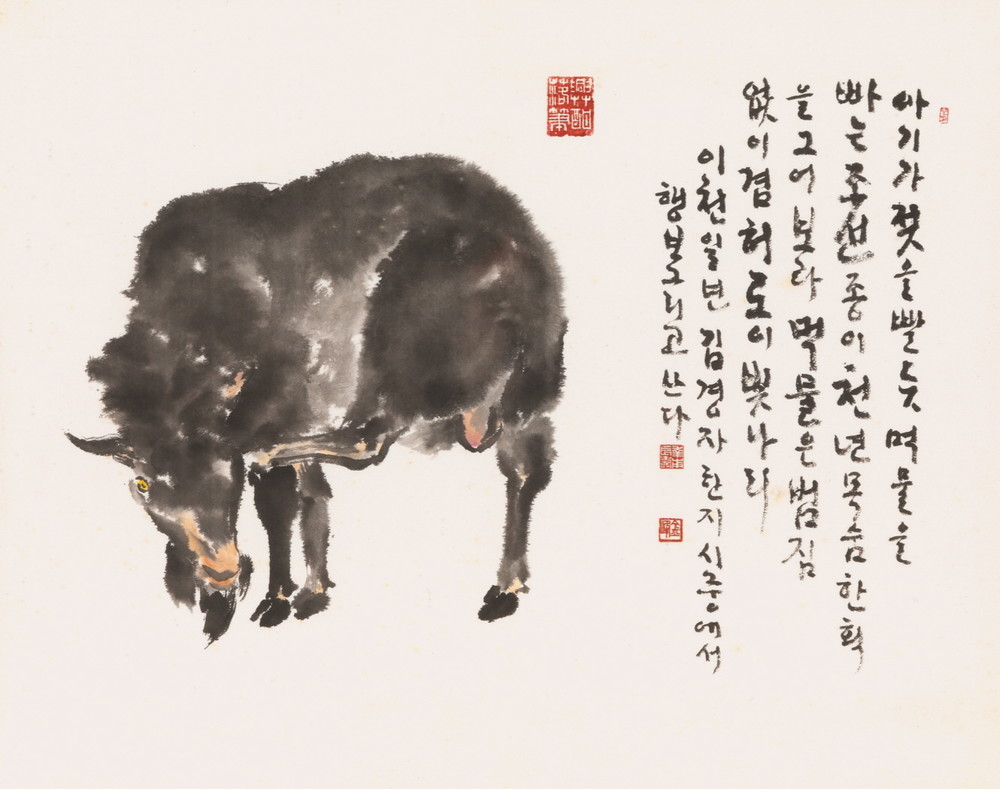 아기가 젖을 빨듯 먹물을
빠는 조선종이 천년 목숨 한 획
을 그어보라 먹물은 범짐
없이 겸허로이 빛나리
이천일년 김경자 한지 시중에서
행보 그리고 쓰다
興酣落筆